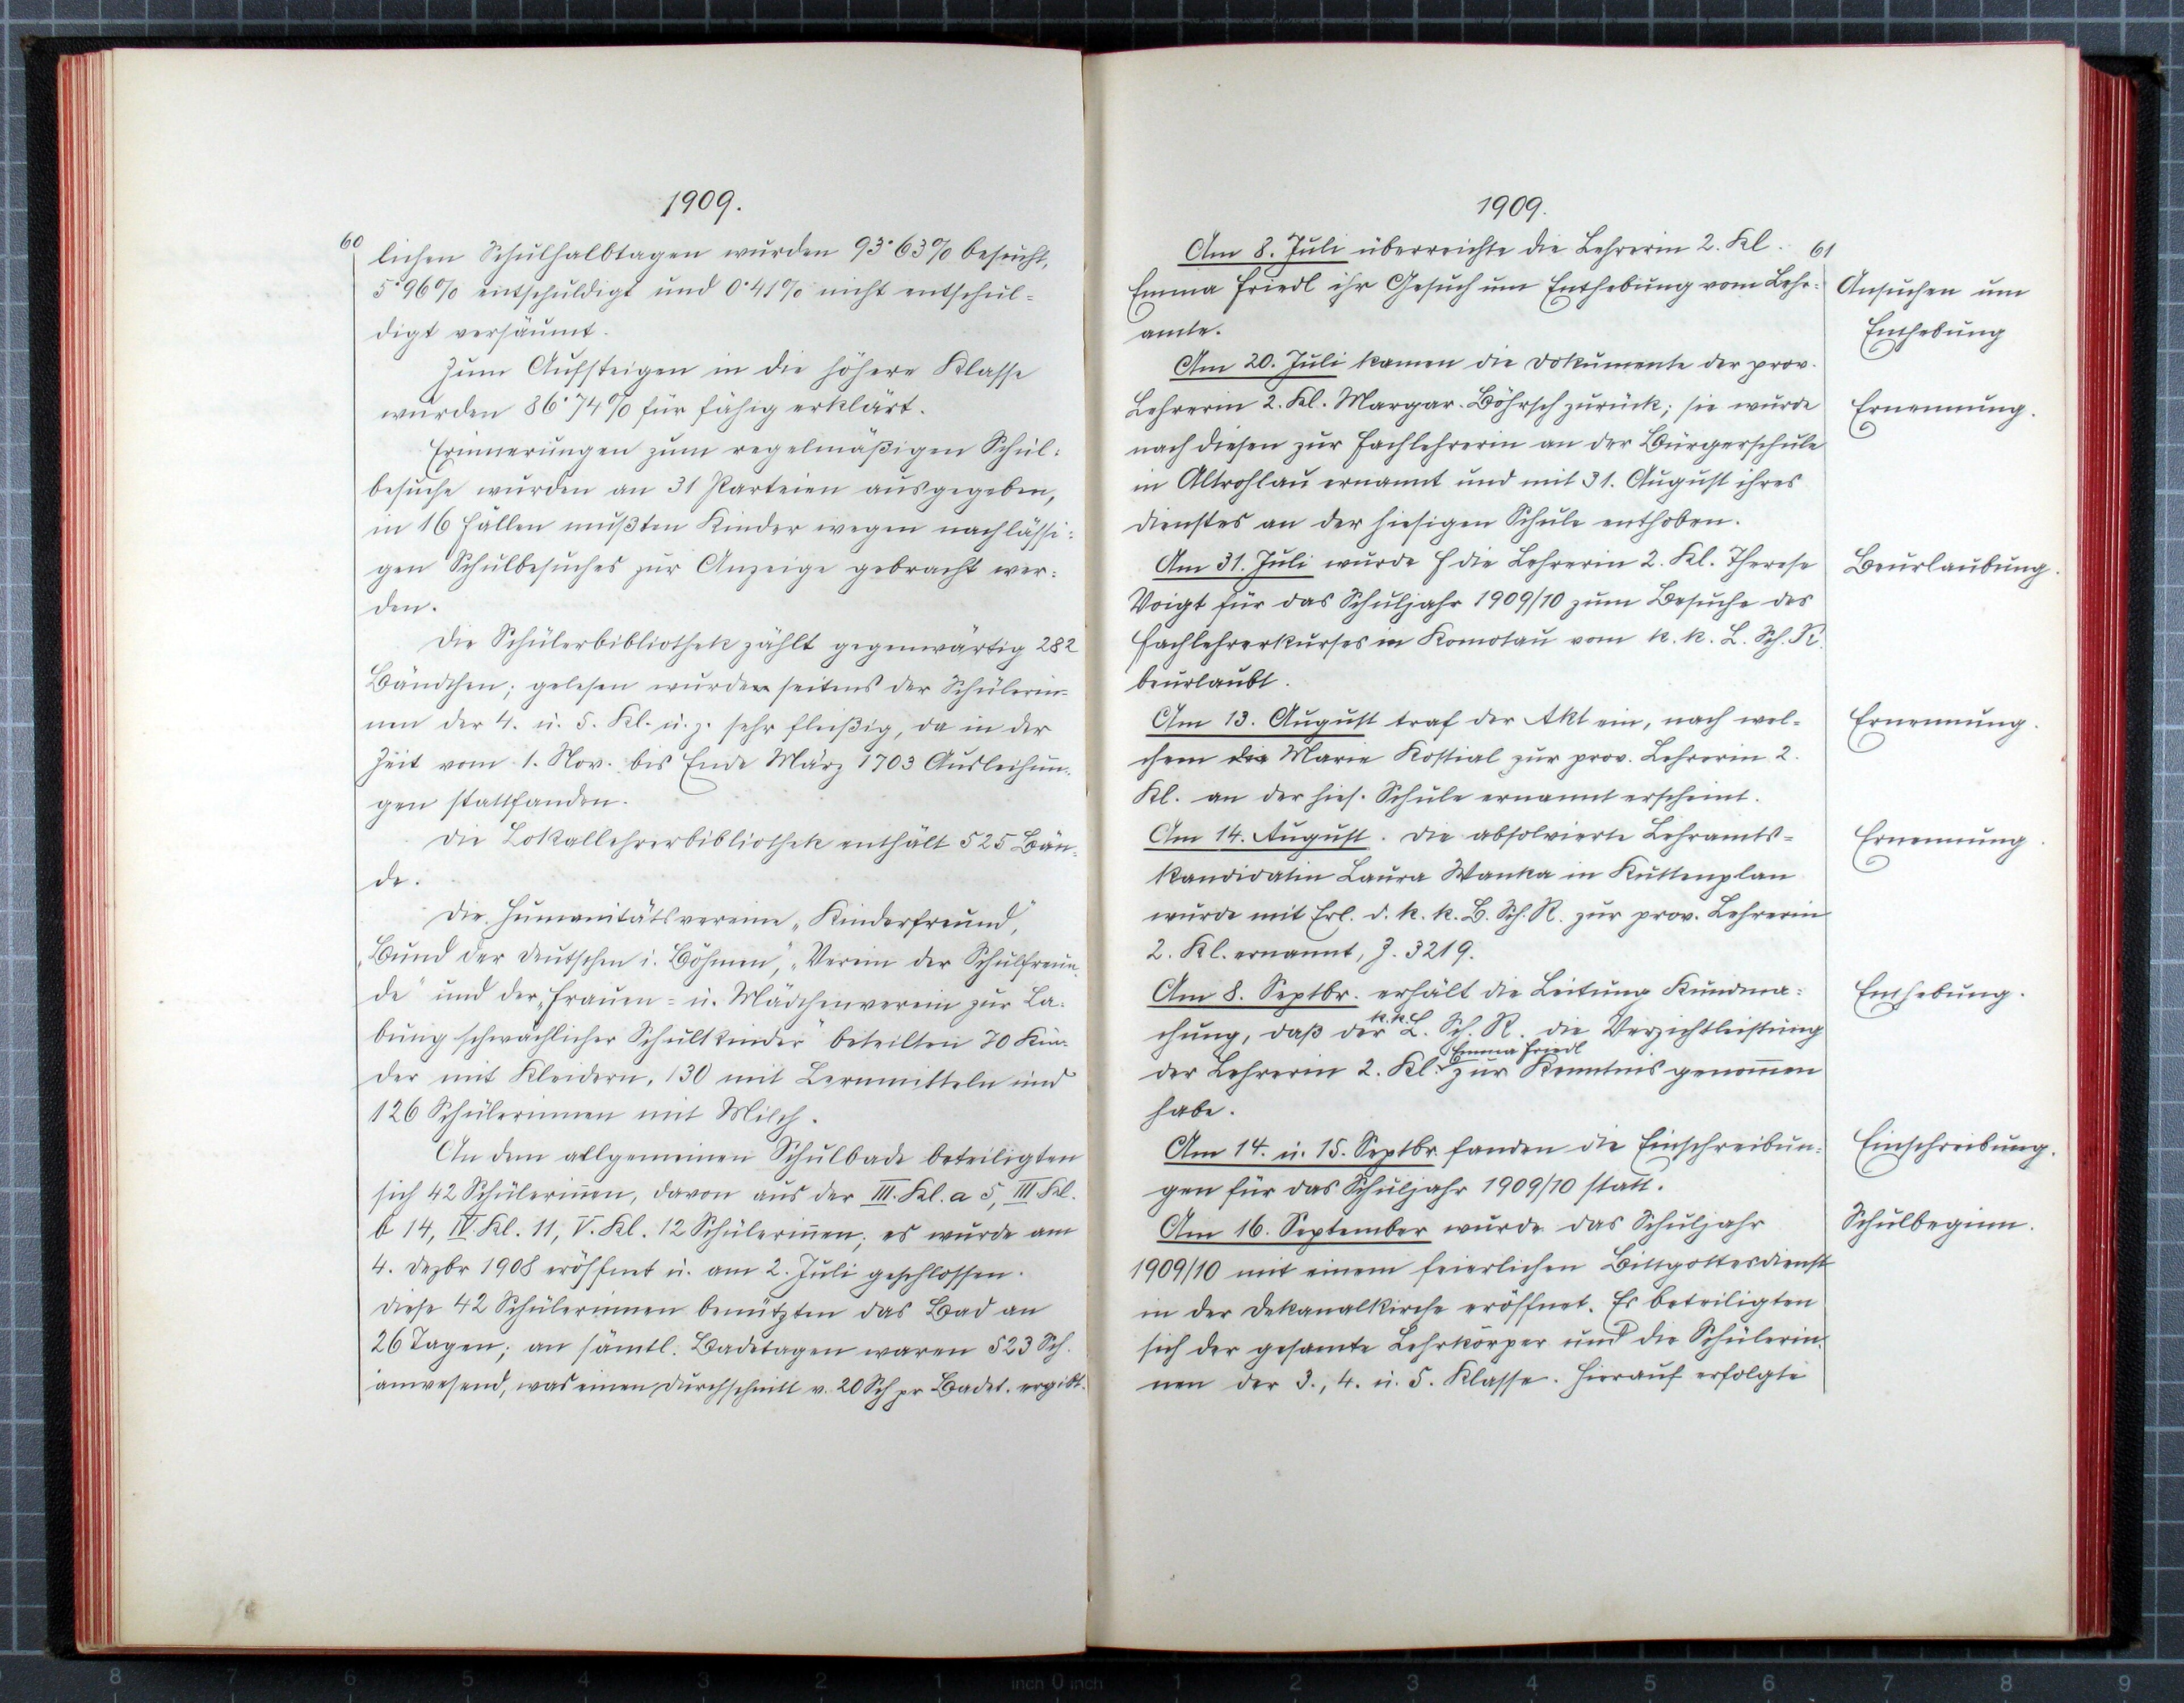 1909.
60
lichen Schulhalbtagen wurden 93·63% besucht,
5·96% entschuldigt und 0·41% nicht entschul=
digt versäumt.
Zum Aufsteigen in die höhere Klasse
wurden 86·74% für fähig erklärt.
Erinnerungen zum regelmäßigen Schul=
besuche wurden an 31 Parteien ausgegeben,
in 16 Fällen mußten Kinder wegen nachlässi=
gen Schulbesuches zur Anzeige gebracht wer=
den.
Die Schülerbibliothek zählt gegenwärtig 282
Bändchen; gelesen wurden seitens der Schülerin=
nen der 4. u. 5. Kl. u. z. sehr fleißig, da in der
Zeit vom 1. Nov. bis Ende März 1703 Ausleihun=
gen stattfanden.
Die Lokallehrerbibliothek enthält 525 Bän=
de.
Die Humanitätsvereine „Kinderfreund",
„Bund der Deutschen i. Böhmen", „Verein der Schulfreun=
de" und der „Frauen= u. Mädchenverein zur La=
bung schwächlicher Schulkinder" beteilten 70 Kin=
der mit Kleidern, 130 mit Lernmitteln und
126 Schülerinnen mit Milch.
An dem allgemeinen Schulbade beteiligten
sich 42 Schülerin̄en, davon aus der III. Kl. a 5, III. Kl.
b 14, IV. Kl. 11, V. Kl. 12 Schülerin̄en; es wurde am
4. Dezbr 1908 eröffnet u. am 2. Juli geschlossen.
Diese 42 Schülerinnen benützten das Bad an
26 Tagen; an sämtl. Badetagen waren 523 Sch.
anwesend, was einen Durchschnitt v. 20 Sch pr Badet. ergibt.
1909.
61
Am 8. Juli überreichte die Lehrerin 2. Kl.
Emma Friedl ihr Gesuch um Enthebung vom Lehr=
amte.
Ansuchen um
Enthebung
Am 20. Juli kamen die Dokumente der prov.
Lehrerin 2. Kl. Margar. Böhrsch zurück; sie wurde
nach diesen zur Fachlehrerin an der Bürgerschule
in Altrohlau ernannt und mit 31. August ihres
Dienstes an der hiesigen Schule enthoben.
Ernennung.
Am 31. Juli wurde die Lehrerin 2. Kl. Therese
Voigt für das Schuljahr 1909/10 zum Besuche des
Fachlehrerkurses in Komotau vom k. k. L. Sch. R.
beurlaubt.
Beurlaubung.
Am 13. August traf der Akt ein, nach wel=
chem die Marie Kostial zur prov. Lehrerin 2.
Kl. an der hies. Schule ernannt erscheint.
Ernennung.
Am 14. August. Die absolvierte Lehramts=
kandidatin Laura Wanka in Kuttenplan
wurde mit Erl. d. k. k. B. Sch. R. zur prov. Lehrerin
2. Kl. ernannt, Z. 3219.
Ernennung
Am 8. Septbr. erhält die Leitung Kundma=
chung, daß der k. k. L. Sch. R. die Verzichtleistung
der Lehrerin 2. Kl. Emma Friedl zur Kenntnis genom̄en
habe.
Enthebung.
Am 14. u. 15. Septbr. fanden die Einschreibun=
gen für das Schuljahr 1909/10 statt.
Einschreibung.
Am 16. September wurde das Schuljahr
1909/10 mit einem feierlichen Bittgottesdienst
in der Dekanalkirche eröffnet. Es beteiligten
sich der gesamte Lehrkörper und die Schülerin=
nen der 3., 4. u. 5. Klasse. Hierauf erfolgte
Schulbeginn.
8 7 6 5 4 3 2 1 inch 0 inch 1 2 3 4 5 6 7 8 9